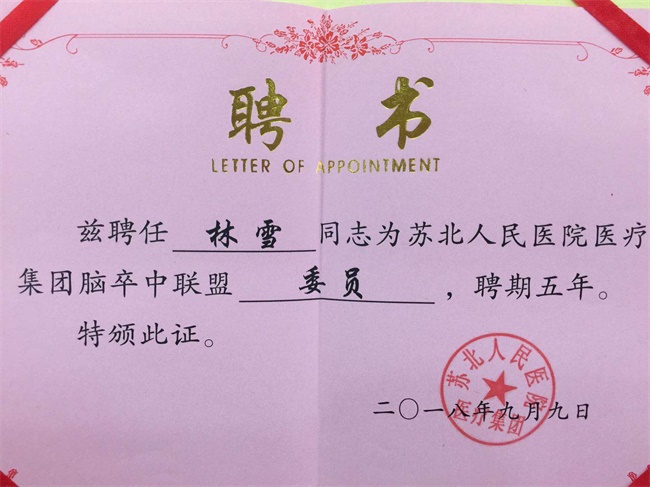 聘书
LETTER OF APPOINTMENT
兹聘任 林雪 同志为苏北人民医院医疗
集团脑卒中联盟 委员 ，聘期五年。
特颁此证。
苏北人民医院
医疗集团
二〇一八年九月九日